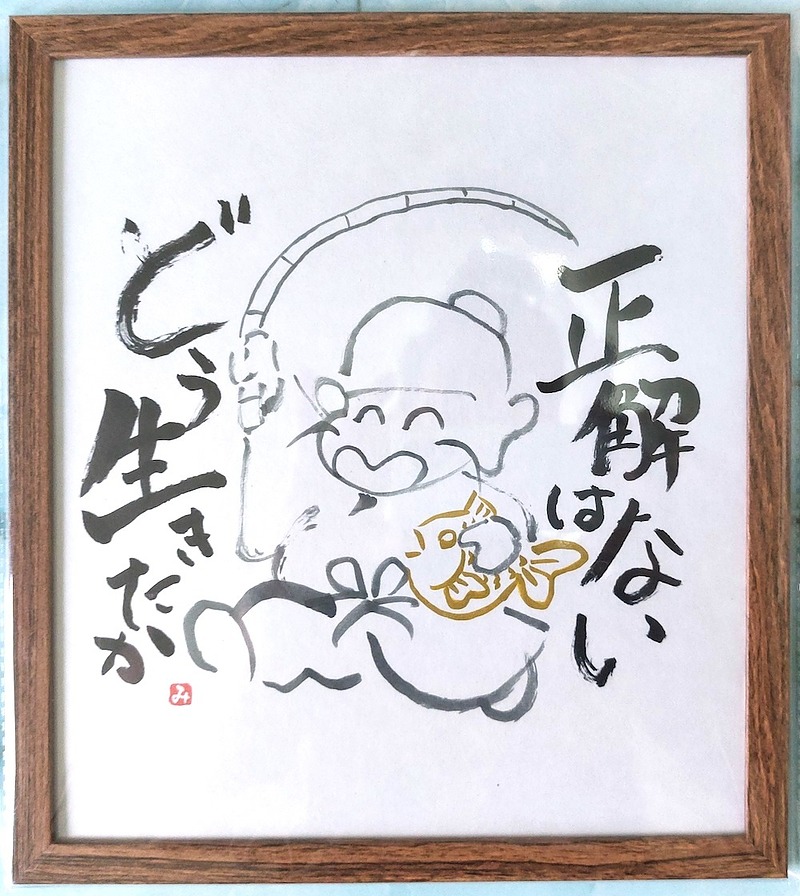 正解はない
どう生きたか
み